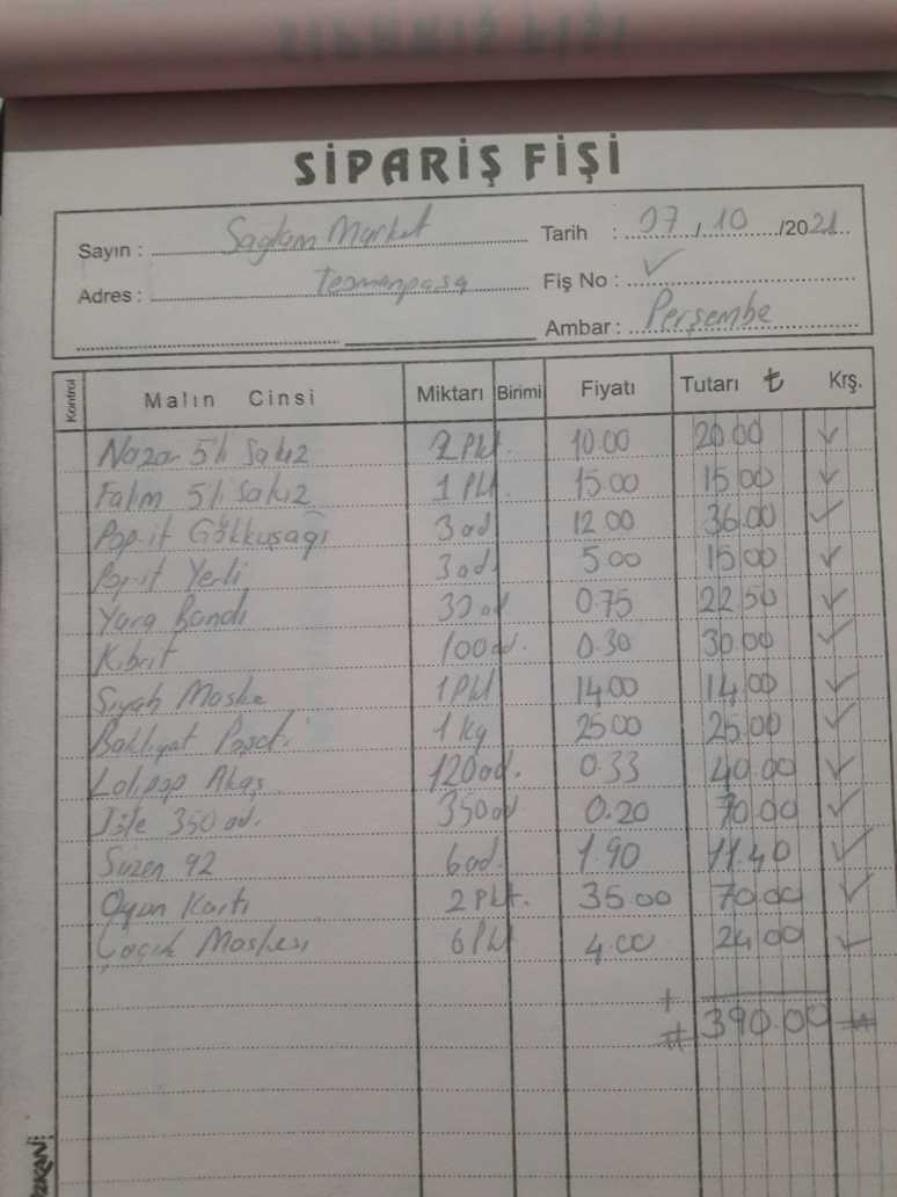 SİPARİŞ FİŞİ
Sayın : Sağlam Market Tarih : 07/10/2021
Adres : Teomanpaşa Fiş No : ✓
Ambar : Perşembe
Kontrol Malın Cinsi Miktarı Birimi Fiyatı Tutarı ₺ Krş.
Nazar 5li Sakız 2 Pkt. 10.00 20.00 ✓
Falım 5li Sakız 1 Pkt. 15.00 15.00 ✓
Pop-it Gökkuşağı 3 ad 12.00 36.00 ✓
Pop-it Yerli 3 ad. 5.00 15.00 ✓
Yara Bandı 30 ad 0.75 22.50 ✓
Kibrit 100 ad. 0.30 30.00 ✓
Siyah Maske 1 Pkt 14.00 14.00 ✓
Bakliyat Poşeti 1 kg 25.00 25.00 ✓
Lolipop Akaş 120 ad. 0.33 40.00 ✓
350 ad. 350 ad 0.20 70.00 ✓
Süzen 92 6 ad. 1.90 11.40 ✓
Oyun Kartı 2 Pkt. 35.00 70.00 ✓
Çocuk Maskesi 6 Pkt 4.00 24.00 ✓
+
# 390.00 #